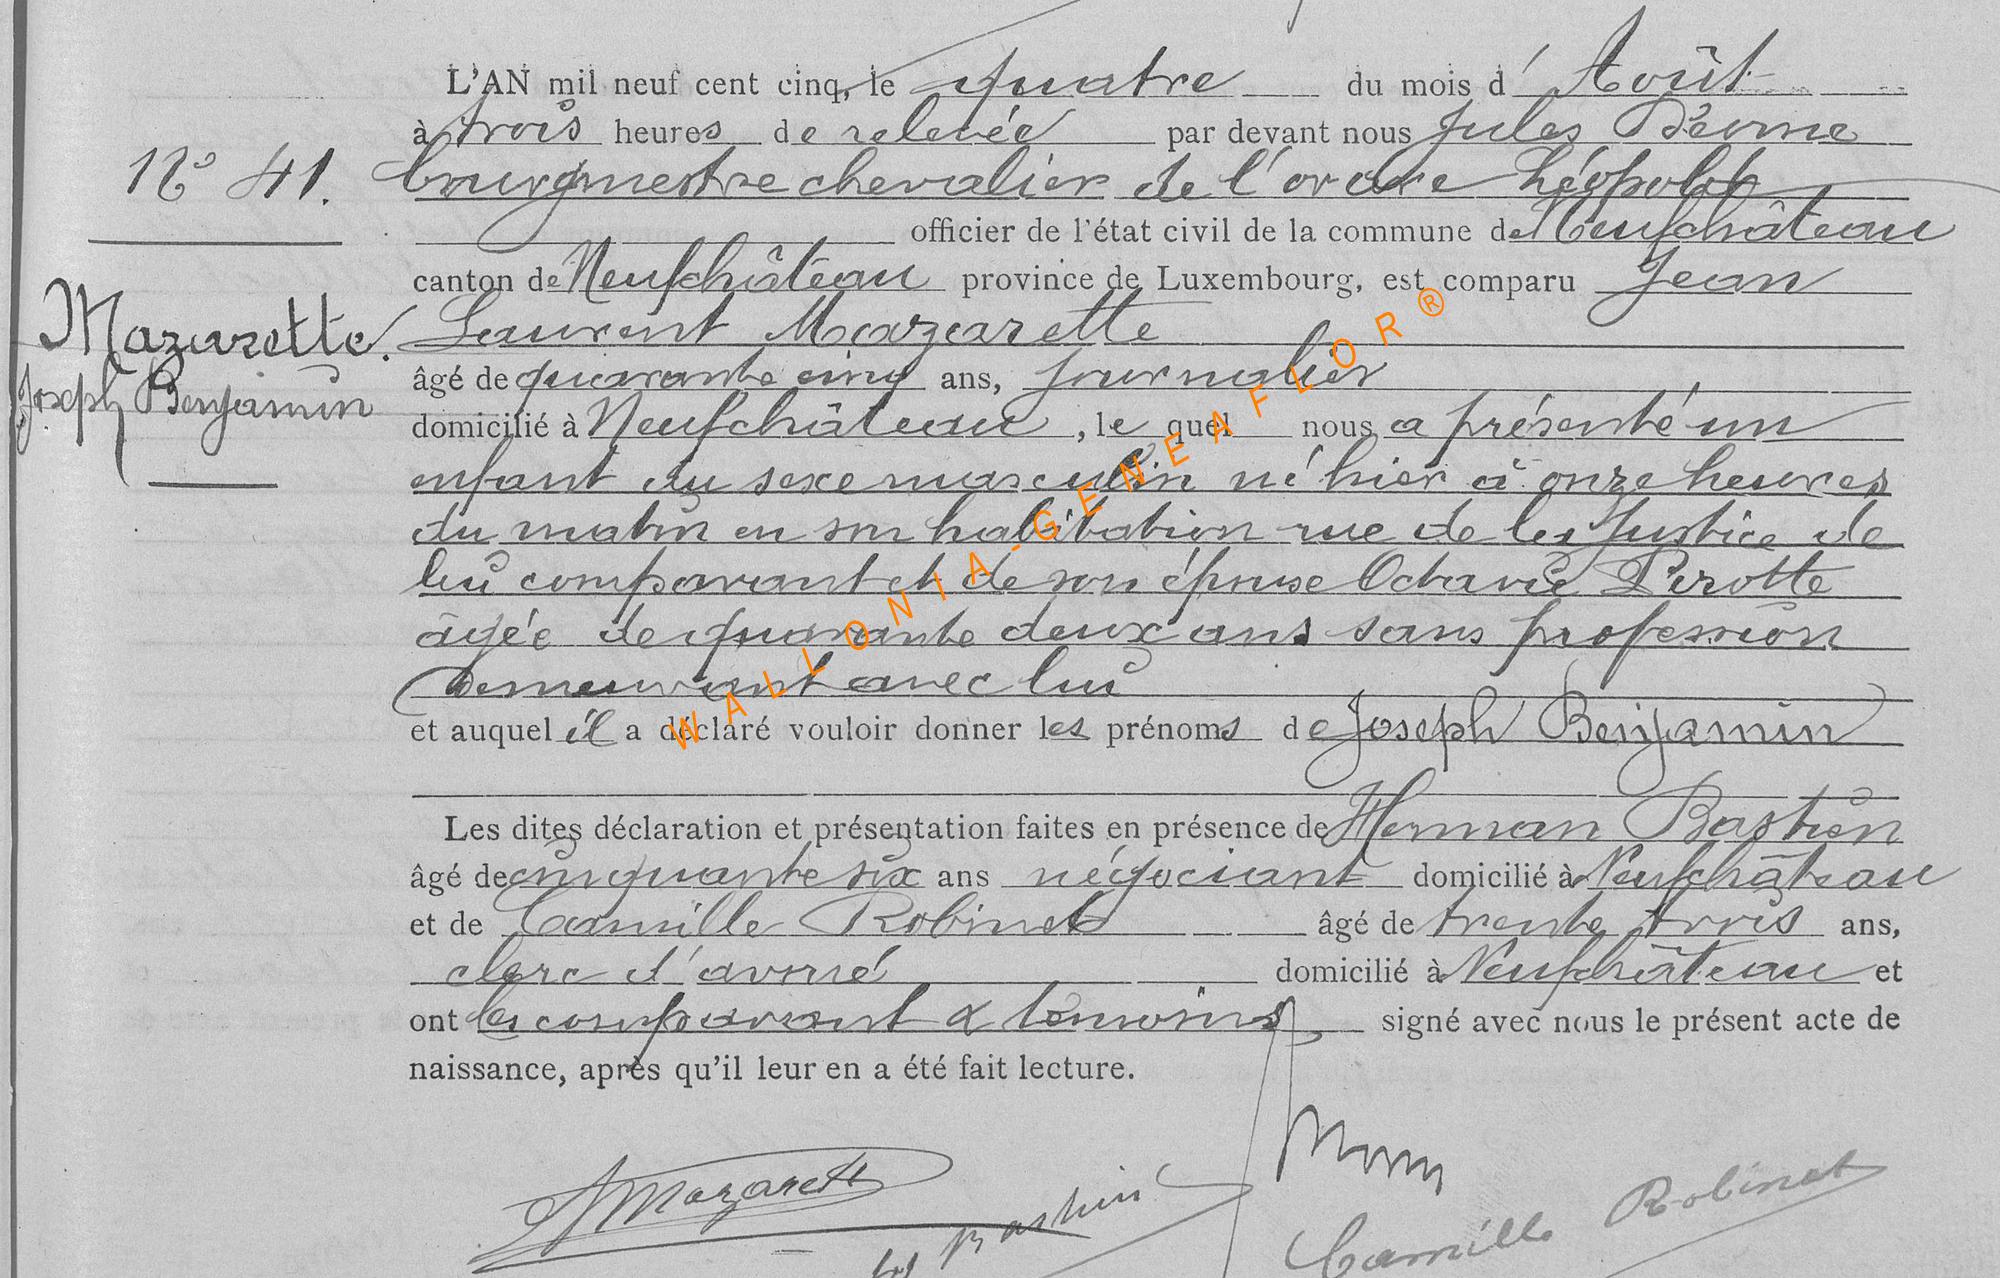 L'AN mil neuf cent cinq, le quatre du mois d' Août
à trois heures de relevée par devant nous Jules
N° 41. bourgmestre chevalier de l'ordre Léopold
officier de l'état civil de la commune de Neufchâteau
canton de Neufchâteau province de Luxembourg, est comparu Jean
Mazarette. Laurent Mazarette
Joseph Benjamin
âgé de quarante cinq ans, journalier
domicilié à Neufchâteau, le quel nous a présenté un
enfant du sexe masculin né hier à onze heures
du matin en son habitation rue de la Justice de
lui comparant et de son épouse Octavie Pirotte
âgée de quarante deux ans sans profession
demeurant avec lui
et auquel il a déclaré vouloir donner les prénoms de Joseph Benjamin
Les dites déclaration et présentation faites en présence de Herman Bastien
âgé de cinquante six ans négociant domicilié à Neufchâteau
et de Camille Robinet âgé de trente trois ans,
clerc d'avoué domicilié à Neufchâteau et
ont les comparant & témoins signé avec nous le présent acte de
naissance, après qu'il leur en a été fait lecture.
Mazarette
Bastien
Camille Robinet
WALLONIA-GENEAFLOR®